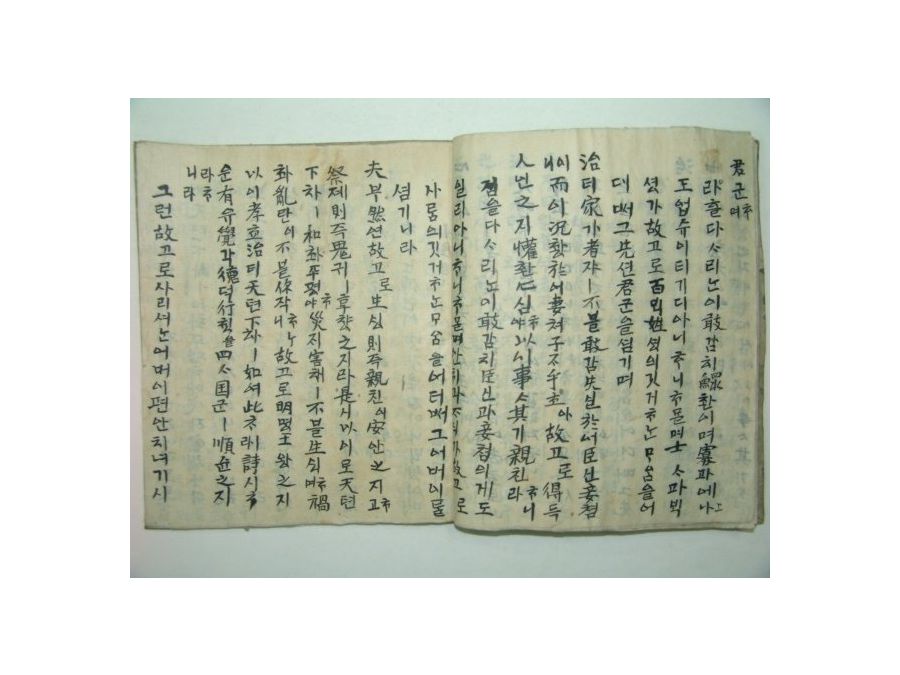 君군ᄒᆞ여
라흘다ᄉᆞ리ᄂᆞ이敢감치鰥환이며寡과에나
도업슈이너기디아니ᄒᆞ니ᄒᆞ믈며士ᄉᆞ과ᄇᆡᆨ
셩가故고로百ᄇᆡᆨ姓셩의깃거ᄒᆞᄂᆞᆫᄆᆞᄋᆞᆷ을어
더ᄡᅥ그先션君군을셤기며
治티家가者쟈ㅣ不블敢감失실於어臣신妾쳡
이而이况황於어妻쳐子ᄌᆞ乎호아故고로得득
人인之지懽환心심ᄒᆞ야以이事ᄉᆞ其기親친ᄒᆞ니라
졉을다ᄉᆞ리ᄂᆞ이敢감치臣신과妾쳡의게도
실리아니ᄒᆞ니ᄒᆞ믈며안ᄒᆡ과ᄌᆞ식가故고로
사ᄅᆞᆷ의깃거ᄒᆞᄂᆞᆫᄆᆞᄋᆞᆷ을어더ᄡᅥ그어버이를
셤기니라
夫부然연故고로生ᄉᆡᆼ則즉親친이安안之지ᄒᆞ고
祭졔則즉鬼귀ㅣ享향之지라是시以이로天텬
下하ㅣ和화平평ᄒᆞ야災ᄌᆡ害ᄒᆡㅣ不블生ᄉᆡᆼᄒᆞ며禍
화亂란이不블作작ᄒᆞᄂᆞ니故고로明명王왕之지
以이孝효로治티天텬下하ㅣ如여此ᄎᆞᄒᆞ니詩시
云有유覺각德덕行ᄒᆡᆼ을四ᄉᆞ国군ㅣ順슌之지
라ᄒᆞ
니라
그런故고로사라셔ᄂᆞᆫ어버이편안히너기시